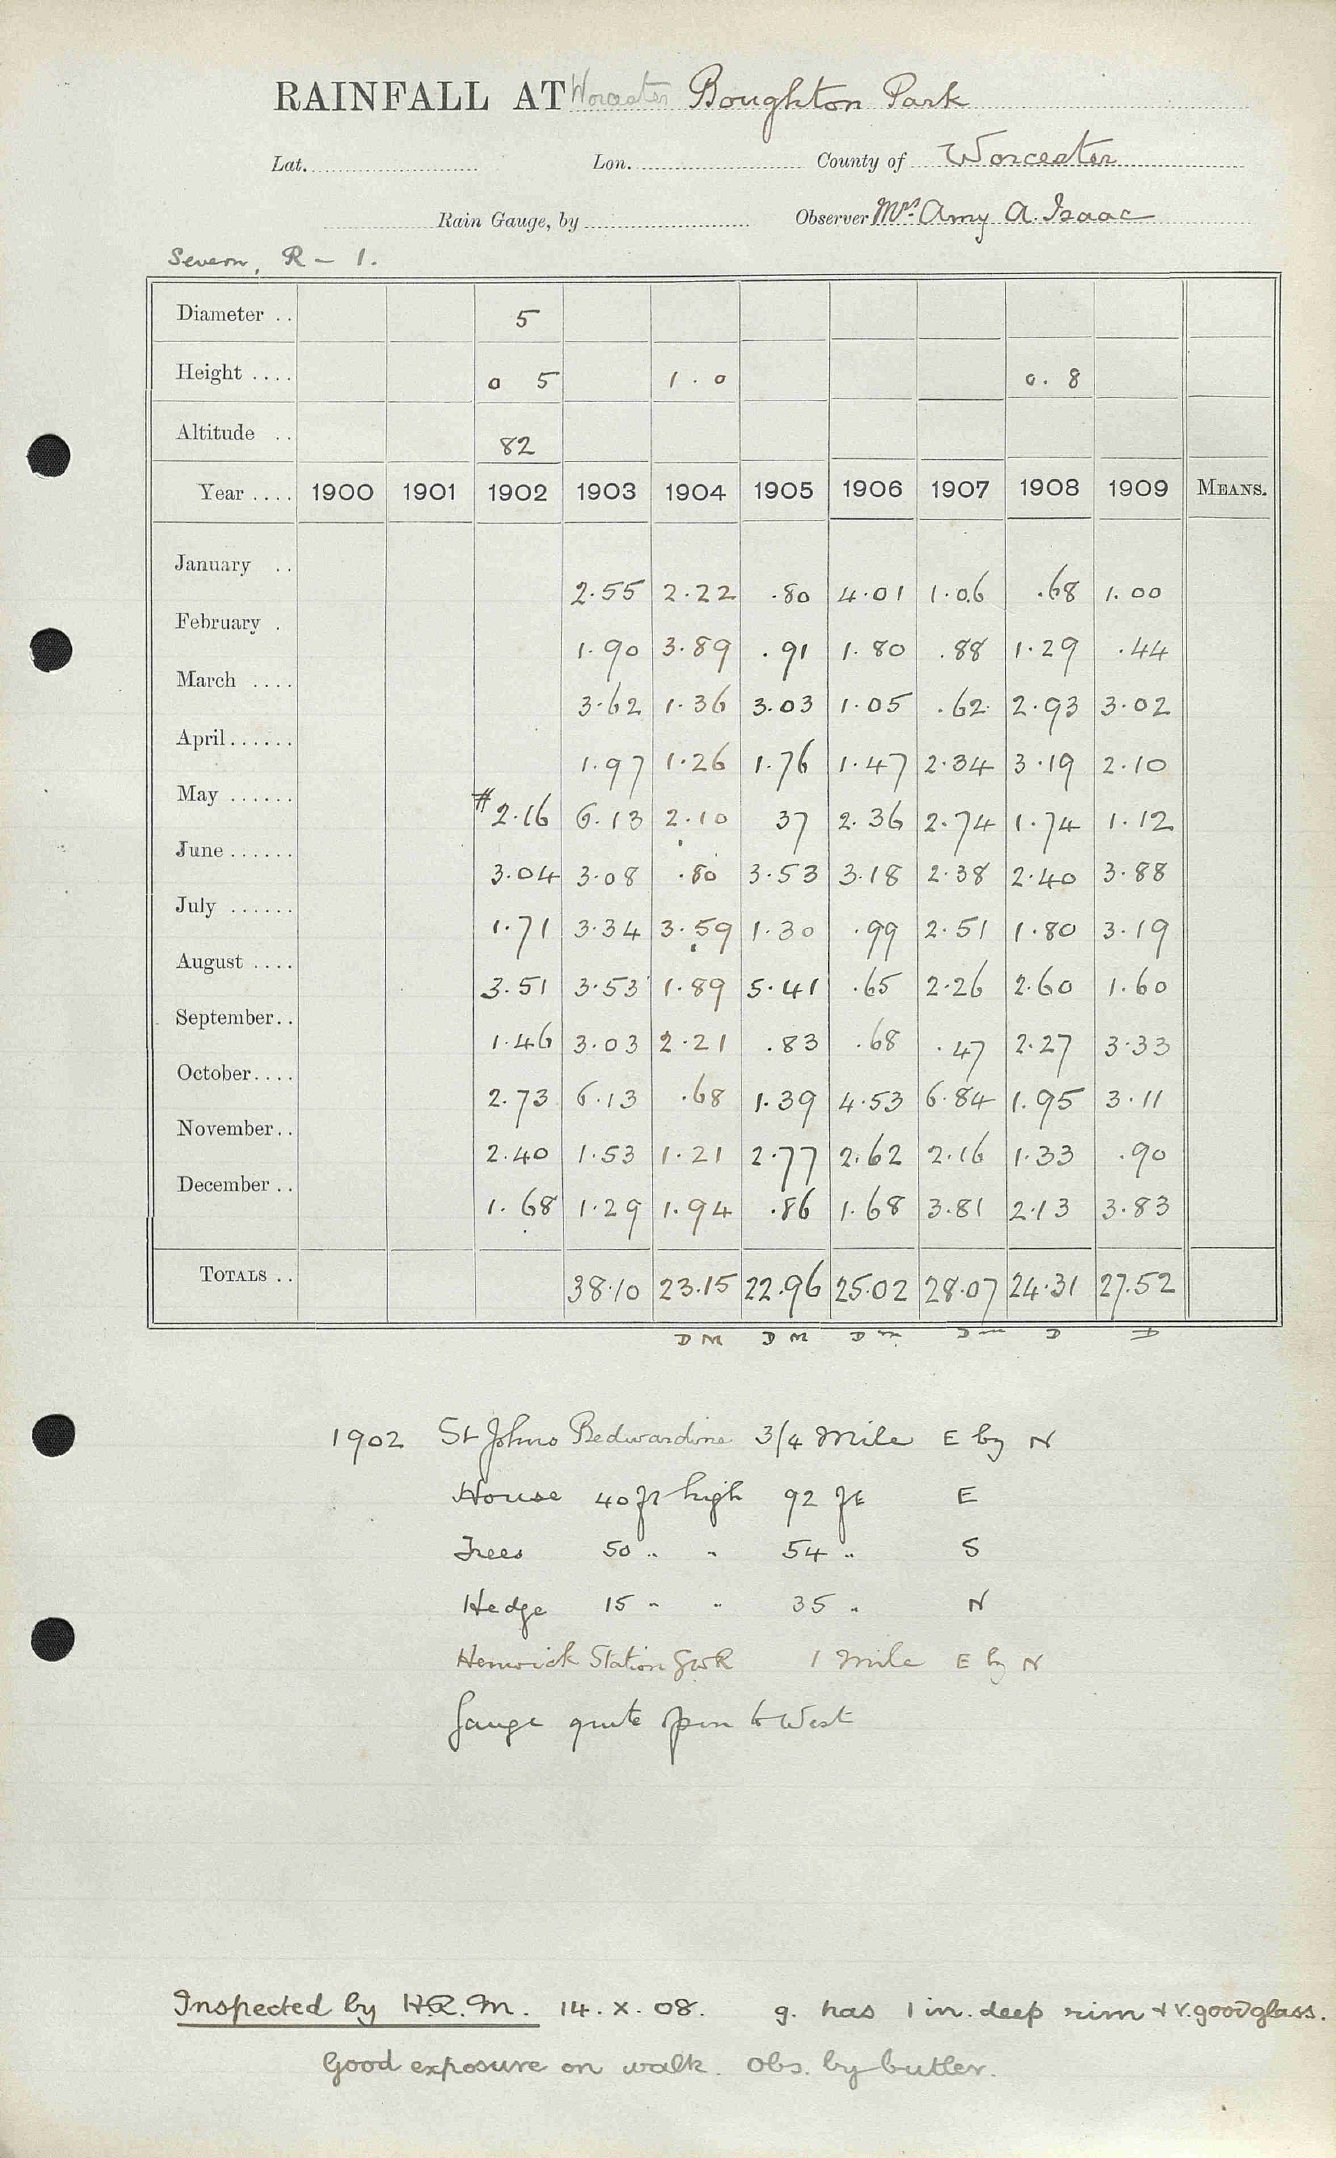 RAINFALL AT Worcester Boughton Park
Lat. Lon. County of Worcester
Rain Gauge, by Observer Mrs. Amy A. Isaac
Severn, R - 1.
Diameter .. 5
Height .... 0 5 1 . 0 0 . 8
Altitude .. 82
Year .... 1900 1901 1902 1903 1904 1905 1906 1907 1908 1909 MEANS.
January .. 2.55 2.22 .80 4.01 1.06 .68 1.00
February . 1.90 3.89 .91 1.80 .88 1.29 .44
March .... 3.62 1.36 3.03 1.05 .62 2.93 3.02
April...... 1.97 1.26 1.76 1.47 2.34 3.19 2.10
May ...... #2.16 6.13 2.10 37 2.36 2.74 1.74 1.12
June ...... 3.04 3.08 .80 3.53 3.18 2.38 2.40 3.88
July ...... 1.71 3.34 3.59 1.30 .99 2.51 1.80 3.19
August .... 3.51 3.53 1.89 5.41 .65 2.26 2.60 1.60
September.. 1.46 3.03 2.21 .83 .68 .47 2.27 3.33
October.... 2.73 6.13 .68 1.39 4.53 6.84 1.95 3.11
November.. 2.40 1.53 1.21 2.77 2.62 2.16 1.33 .90
December .. 1.68 1.29 1.94 .86 1.68 3.81 2.13 3.83
TOTALS .. 38.10 23.15 22.96 25.02 28.07 24.31 27.52
D M D M D m D m D D
1902 St Johns Bedwardine 3/4 Mile E by N
House 40 ft high 92 ft E
Trees 50 " " 54 " S
Hedge 15 " " 35 " N
Henwick Station GWR 1 Mile E by N
Gauge quite open to West
Inspected by H.R.M. 14. X. 08. g. has 1 in. deep rim + v. good glass.
Good exposure on walk. Obs. by butler.